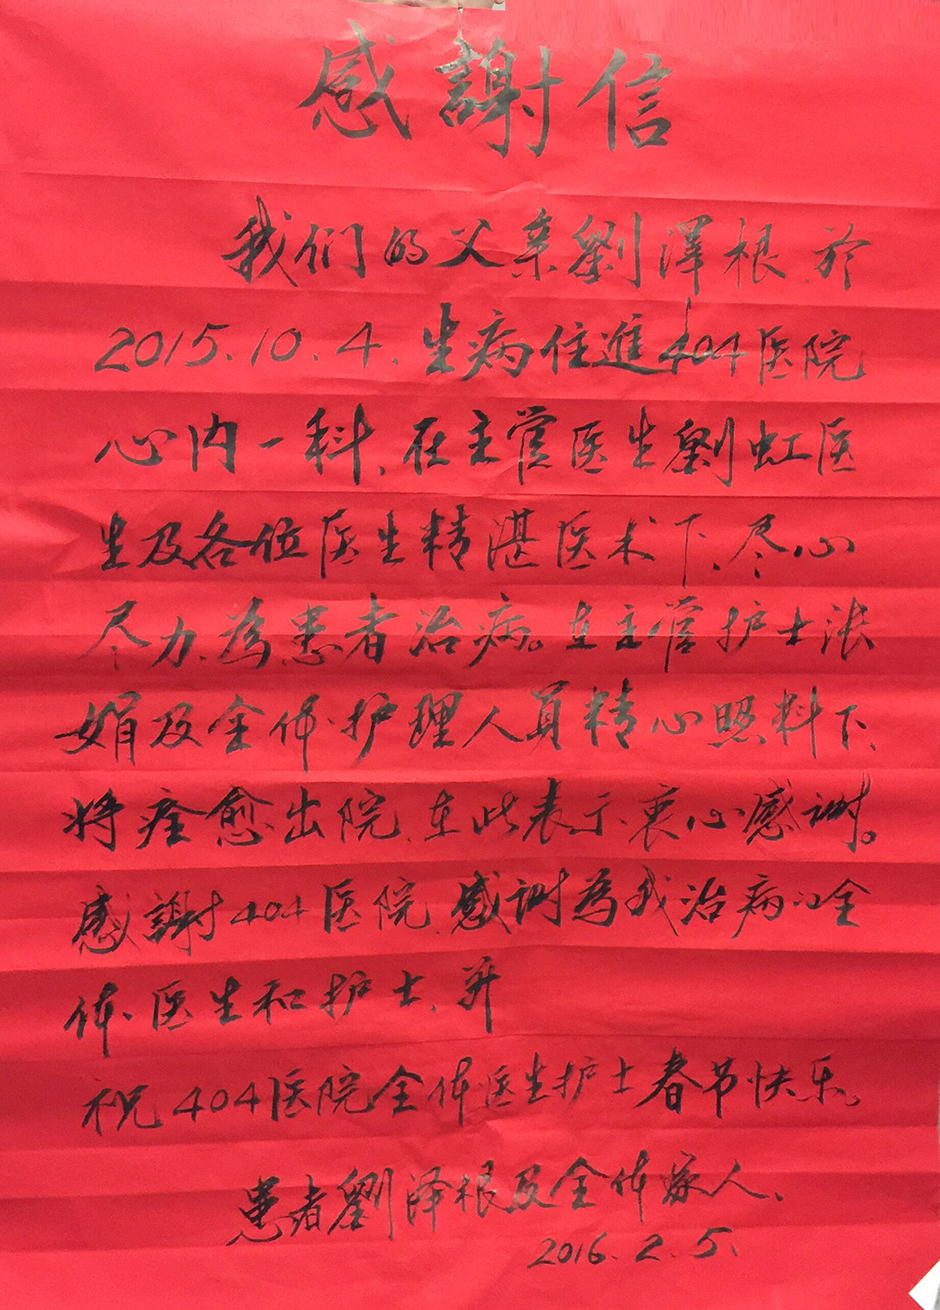 感謝信
我们的父亲劉澤根於
2015.10.4.生病住進404医院
心内一科、在主管医生劉虹医
生及各位医生精湛医术下、尽心
尽力、為患者治病。在主管护士张
娟及全体护理人員精心照料下、
将痊愈出院、在此表示衷心感謝。
感謝404医院、感謝為我治病的全
体医生和护士、并
祝404医院全体医生护士春节快乐。
患者劉泽根及全体家人、
2016.2.5.